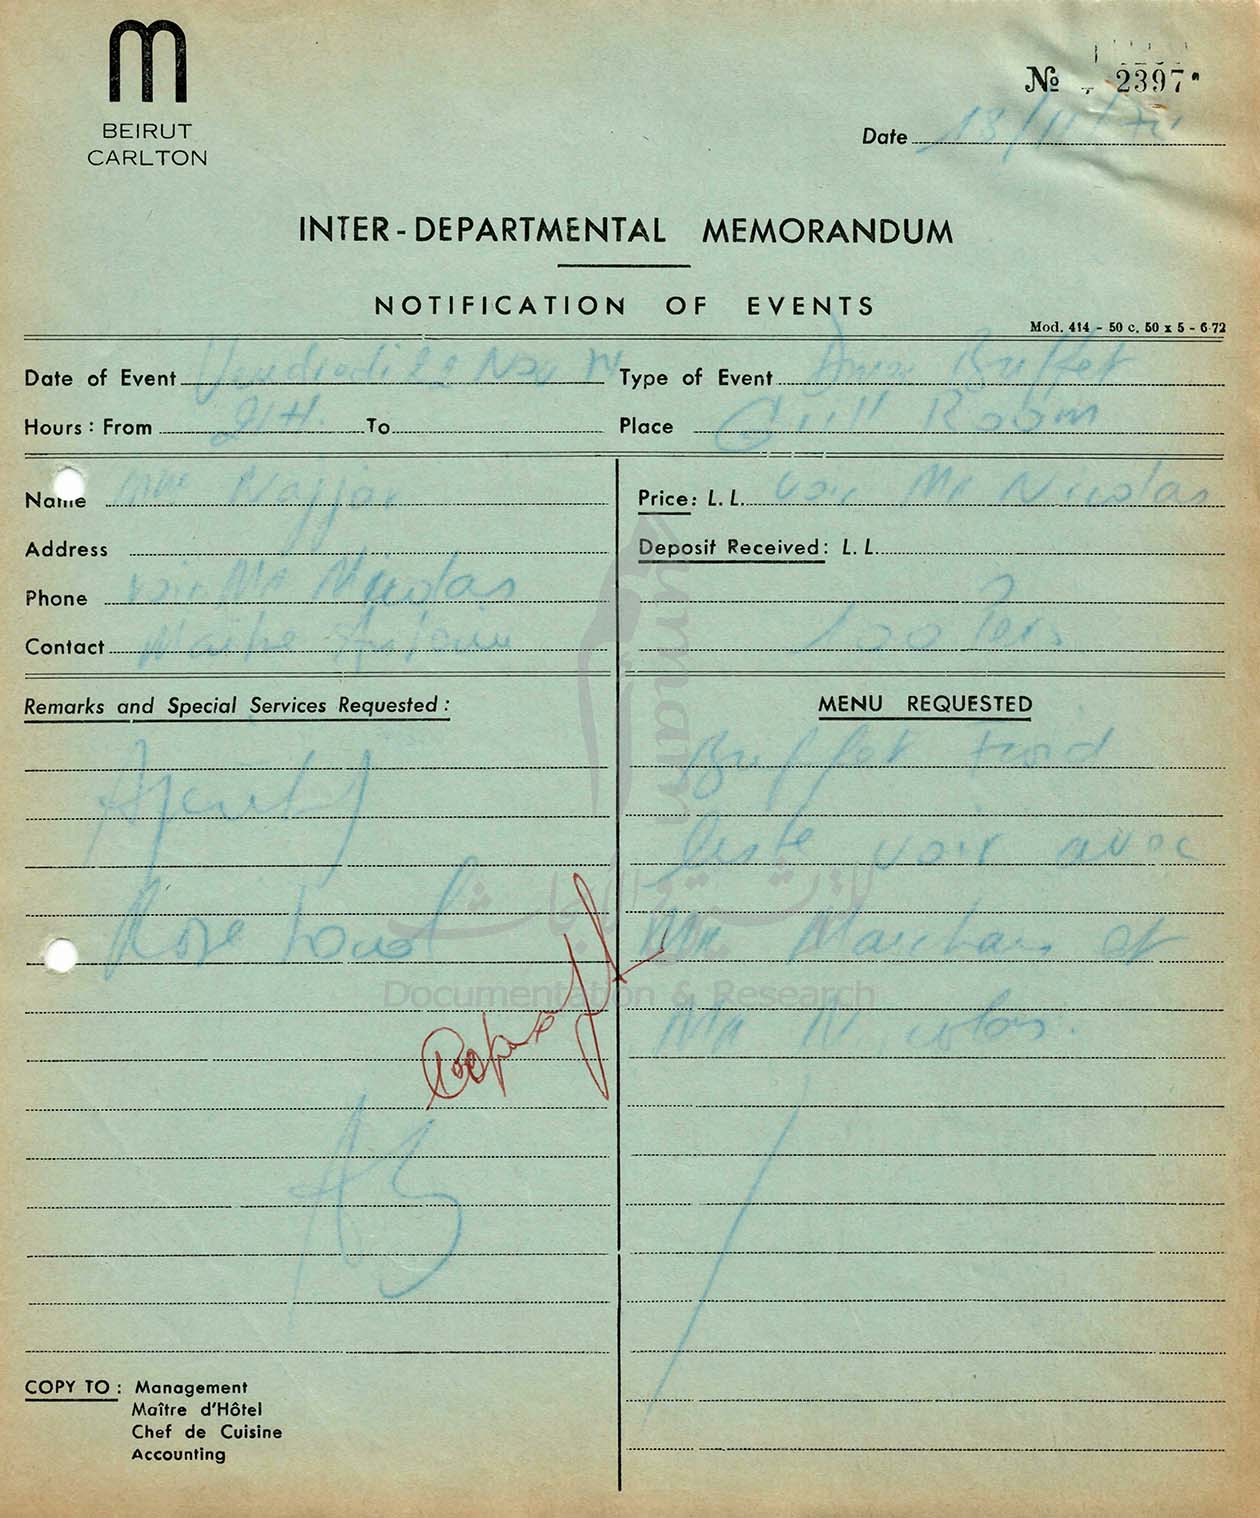 BEIRUT
CARLTON
№ 2397
Date 13/11/74
INTER-DEPARTMENTAL MEMORANDUM
NOTIFICATION OF EVENTS
Mod. 414 - 50 c. 50 x 5 - 6-72
Date of Event Vendredi Nov
Type of Event Buffet
Hours: From 21H. To
Place Grill Room
Name Mme Najjar
Price: L. L. voir Mr Nicolas
Address
Deposit Received: L. L.
Phone voir Mr Nicolas
Contact Maitre Antoine
100 Pers
Remarks and Special Services Requested:
Aperitif
Rose
MENU REQUESTED
Buffet froid
reste voir avec
Mr et
Mr Nicolas.
COPY TO: Management
Maître d'Hôtel
Chef de Cuisine
Accounting
Umam
للتوثيق والأبحاث
Documentation & Research